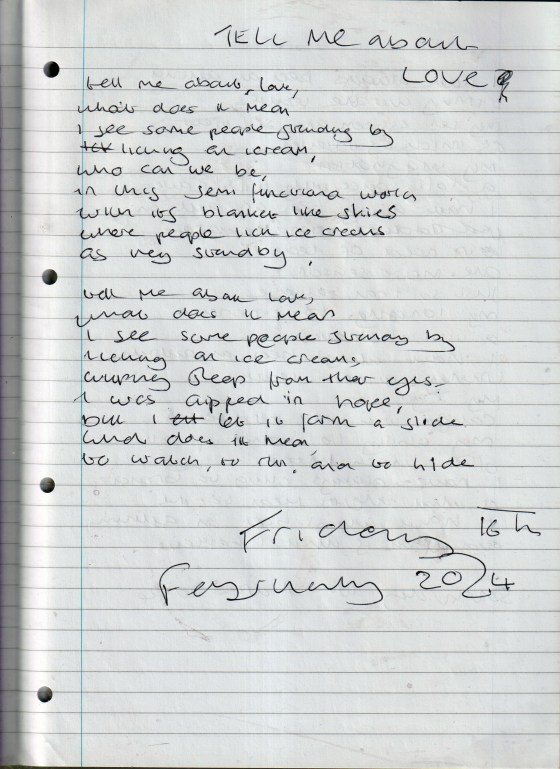 TELL Me about
LOVE?
tell me about, love,
what does it mean
I see some people standing by
licking an icream,
who can we be,
in this semi functional world
with its blanket like skies
where people lick ice creams
as they standby,
tell me about love,
what does it mean
I see some people standing by
licking an ice cream,
wiping sleep from their eyes.
I was dipped in hope,
but I let it form a slide
what does it mean
to watch, to run, and to hide
Friday 16th
February 2024